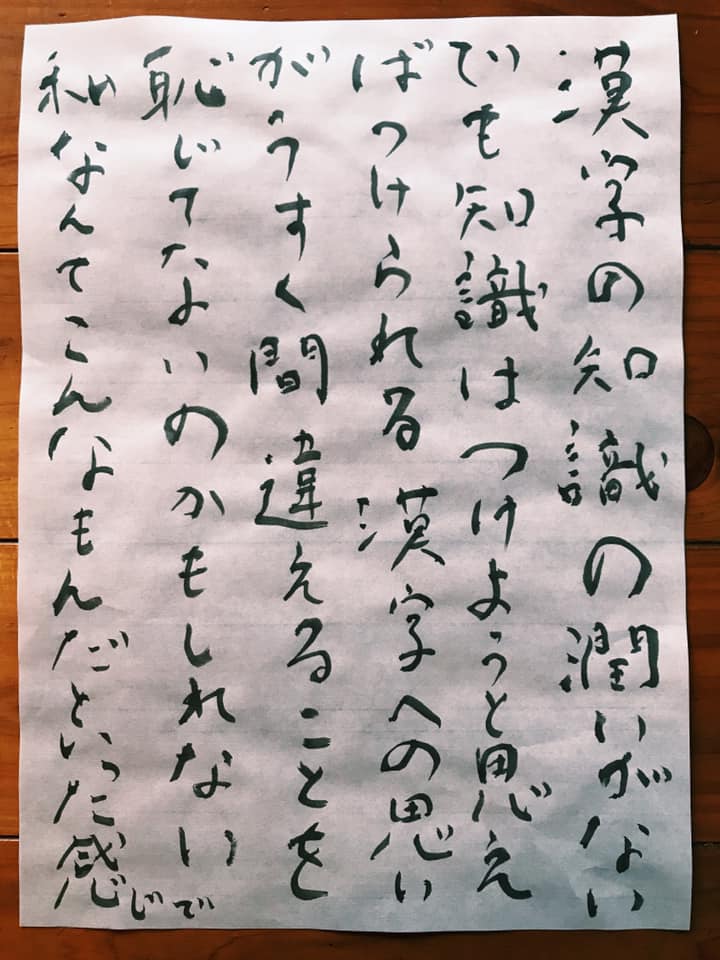 漢字の知識の潤いがない
でも知識はつけようと思え
ばつけられる漢字への思い
がうすく間違えることを
恥じてないのかもしれない
私なんてこんなもんだといった感じで